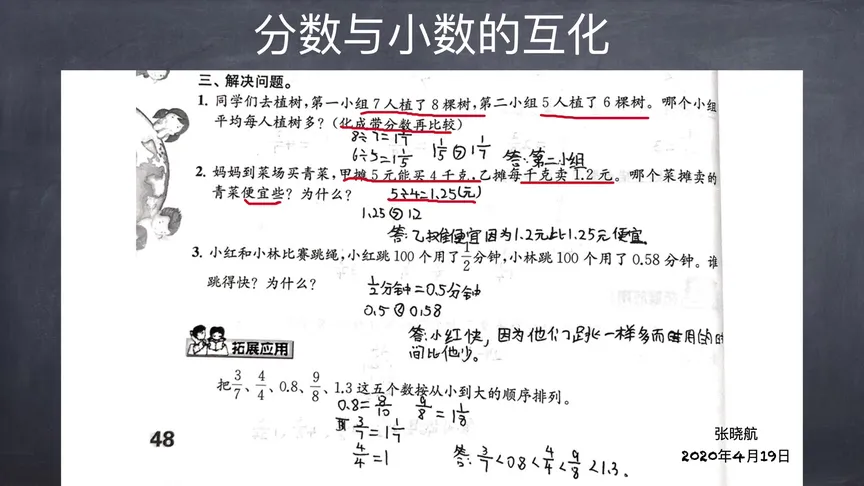 分数与小数的互化
三、解决问题。
1. 同学们去植树,第一小组 7 人植了 8 棵树,第二小组 5 人植了 6 棵树。哪个小组
平均每人植树多?(化成带分数再比较)
8÷7=1 1/7
6÷5=1 1/5 1 1/5 > 1 1/7 答:第二小组
2. 妈妈到菜场买青菜,甲摊 5 元能买 4 千克,乙摊每千克卖 1.2 元。哪个菜摊卖的
青菜便宜些?为什么? 5÷4=1.25(元)
1.25 > 12
答:乙摊便宜因为1.2元比1.25元便宜
3. 小红和小林比赛跳绳,小红跳 100 个用了 1/2 分钟,小林跳 100 个用了 0.58 分钟。谁
跳得快?为什么?
1/2分钟=0.5分钟
0.5 < 0.58
答:小红快,因为他们跳一样多而用的时
间比他少。
拓展应用
把 3/7、4/4、0.8、9/8、1.3 这五个数按从小到大的顺序排列。
0.8=8/10 9/8=1 1/8
3/7=1 1/7
4/4=1
答:3/7<0.8<4/4<9/8<1.3。
48
张晓航
2020年4月19日